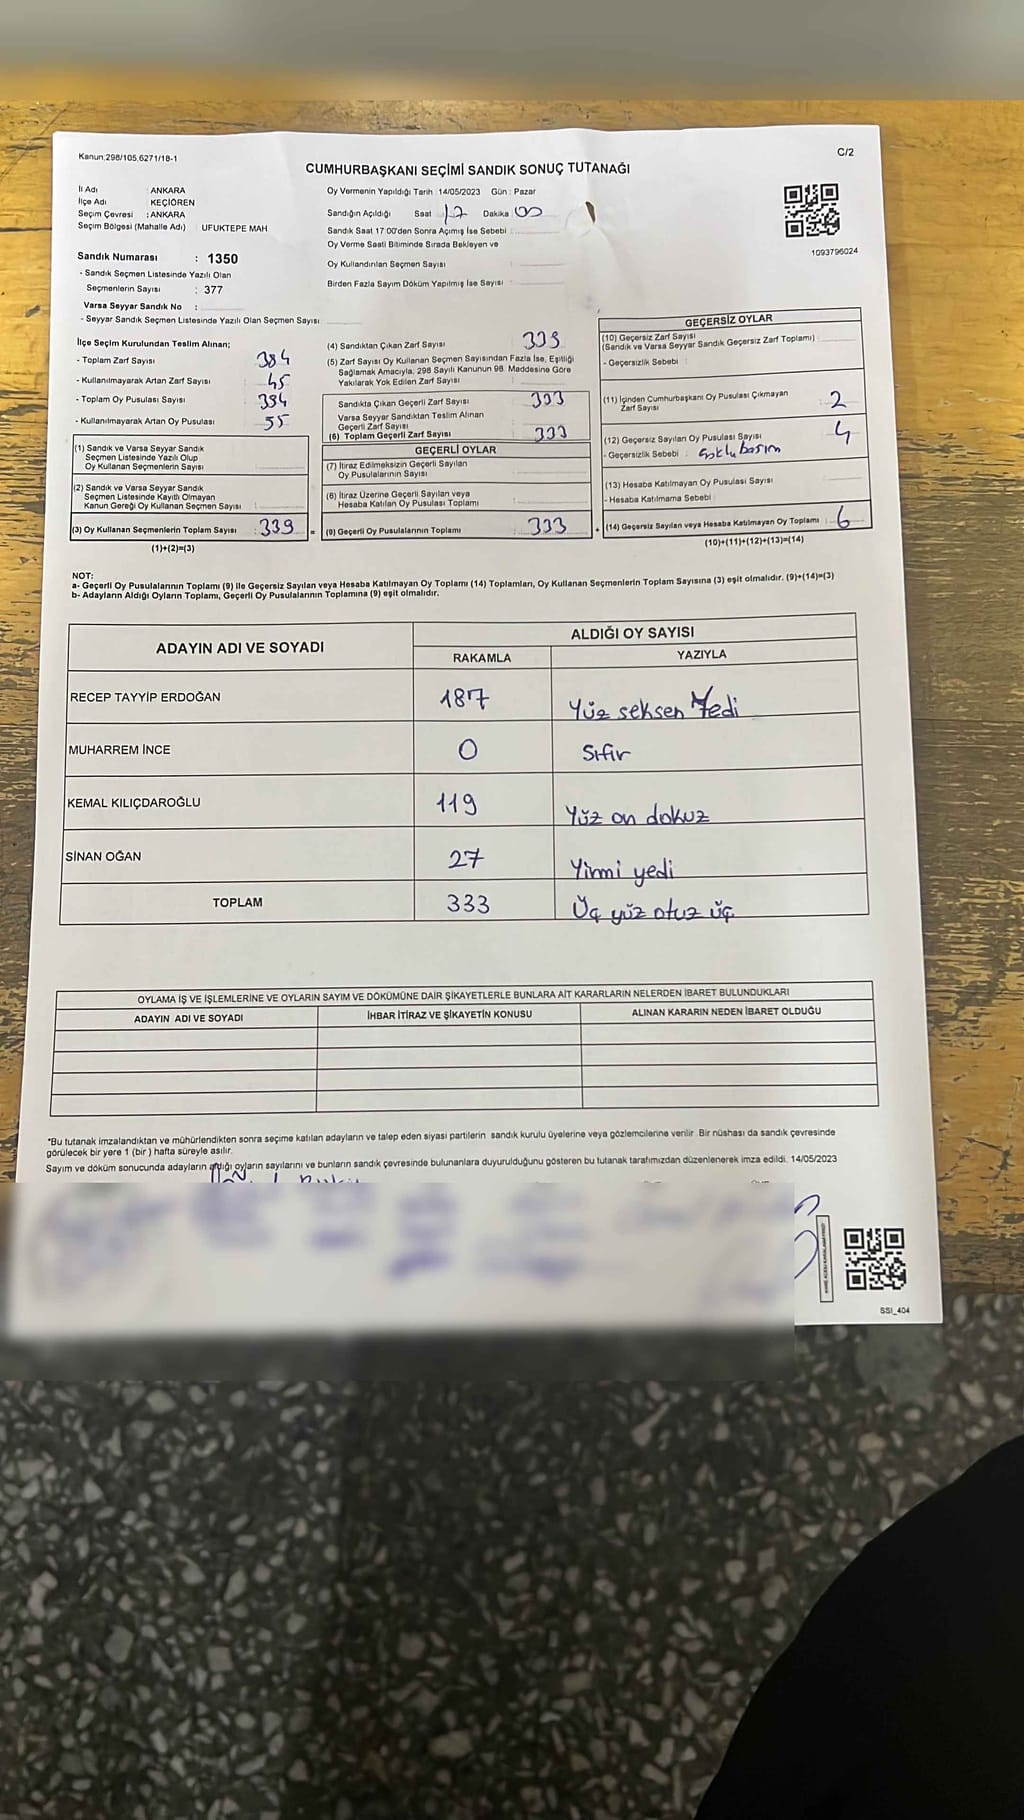 Kanun:298/105,6271/18-1
C/2
CUMHURBAŞKANI SEÇİMİ SANDIK SONUÇ TUTANAĞI
İl Adı : ANKARA
İlçe Adı : KEÇİÖREN
Seçim Çevresi : ANKARA
Seçim Bölgesi (Mahalle Adı) : UFUKTEPE MAH
Oy Vermenin Yapıldığı Tarih :14/05/2023 Gün : Pazar
Sandığın Açıldığı Saat 17 Dakika 00
Sandık Saat 17:00'den Sonra Açımış İse Sebebi :
Oy Verme Saati Bitiminde Sırada Bekleyen ve
Oy Kullandırılan Seçmen Sayısı :
Birden Fazla Sayım Döküm Yapılmış İse Sayısı :
1093796024
Sandık Numarası : 1350
- Sandık Seçmen Listesinde Yazılı Olan
Seçmenlerin Sayısı : 377
Varsa Seyyar Sandık No :
- Seyyar Sandık Seçmen Listesinde Yazılı Olan Seçmen Sayısı :
İlçe Seçim Kurulundan Teslim Alınan;
- Toplam Zarf Sayısı : 384
- Kullanılmayarak Artan Zarf Sayısı : 45
- Toplam Oy Pusulası Sayısı : 394
- Kullanılmayarak Artan Oy Pusulası : 55
(1) Sandık ve Varsa Seyyar Sandık
Seçmen Listesinde Yazılı Olup
Oy Kullanan Seçmenlerin Sayısı :
(2) Sandık ve Varsa Seyyar Sandık
Seçmen Listesinde Kayıtlı Olmayan
Kanun Gereği Oy Kullanan Seçmen Sayısı :
(3) Oy Kullanan Seçmenlerin Toplam Sayısı : 339
(1)+(2)=(3)
(4) Sandıktan Çıkan Zarf Sayısı : 339
(5) Zarf Sayısı Oy Kullanan Seçmen Sayısından Fazla İse, Eşitliği
Sağlamak Amacıyla, 298 Sayılı Kanunun 98. Maddesine Göre
Yakılarak Yok Edilen Zarf Sayısı :
Sandıkta Çıkan Geçerli Zarf Sayısı : 333
Varsa Seyyar Sandıktan Teslim Alınan
Geçerli Zarf Sayısı :
(6) Toplam Geçerli Zarf Sayısı : 333
GEÇERLİ OYLAR
(7) İtiraz Edilmeksizin Geçerli Sayılan
Oy Pusulalarının Sayısı :
(8) İtiraz Üzerine Geçerli Sayılan veya
Hesaba Katılan Oy Pusulası Toplamı :
= (9) Geçerli Oy Pusulalarının Toplamı : 333
GEÇERSİZ OYLAR
(10) Geçersiz Zarf Sayısı
(Sandık ve Varsa Seyyar Sandık Geçersiz Zarf Toplamı) :
- Geçersizlik Sebebi :
(11) İçinden Cumhurbaşkanı Oy Pusulası Çıkmayan
Zarf Sayısı : 2
(12) Geçersiz Sayılan Oy Pusulası Sayısı : 4
- Geçersizlik Sebebi :
(13) Hesaba Katılmayan Oy Pusulası Sayısı :
- Hesaba Katılmama Sebebi :
+ (14) Geçersiz Sayılan veya Hesaba Katılmayan Oy Toplamı : 6
(10)+(11)+(12)+(13)=(14)
NOT:
a- Geçerli Oy Pusulalarının Toplamı (9) ile Geçersiz Sayılan veya Hesaba Katılmayan Oy Toplamı (14) Toplamları, Oy Kullanan Seçmenlerin Toplam Sayısına (3) eşit olmalıdır. (9)+(14)=(3)
b- Adayların Aldığı Oyların Toplamı, Geçerli Oy Pusulalarının Toplamına (9) eşit olmalıdır.
ADAYIN ADI VE SOYADI
ALDIĞI OY SAYISI
RAKAMLA YAZIYLA
RECEP TAYYİP ERDOĞAN 187 Yüz seksen Yedi
MUHARREM İNCE 0 Sıfır
KEMAL KILIÇDAROĞLU 119 Yüz on dokuz
SİNAN OĞAN 27 Yirmi yedi
TOPLAM 333 Üç yüz otuz üç
OYLAMA İŞ VE İŞLEMLERİNE VE OYLARIN SAYIM VE DÖKÜMÜNE DAİR ŞİKAYETLERLE BUNLARA AİT KARARLARIN NELERDEN İBARET BULUNDUKLARI
ADAYIN ADI VE SOYADI İHBAR İTİRAZ VE ŞİKAYETİN KONUSU ALINAN KARARIN NEDEN İBARET OLDUĞU
*Bu tutanak imzalandıktan ve mühürlendikten sonra seçime katılan adayların ve talep eden siyasi partilerin sandık kurulu üyelerine veya gözlemcilerine verilir. Bir nüshası da sandık çevresinde
görülecek bir yere 1 (bir ) hafta süreyle asılır.
Sayım ve döküm sonucunda adayların aldığı oyların sayılarını ve bunların sandık çevresinde bulunanlara duyurulduğunu gösteren bu tutanak tarafımızdan düzenlenerek imza edildi. 14/05/2023
SSI_404